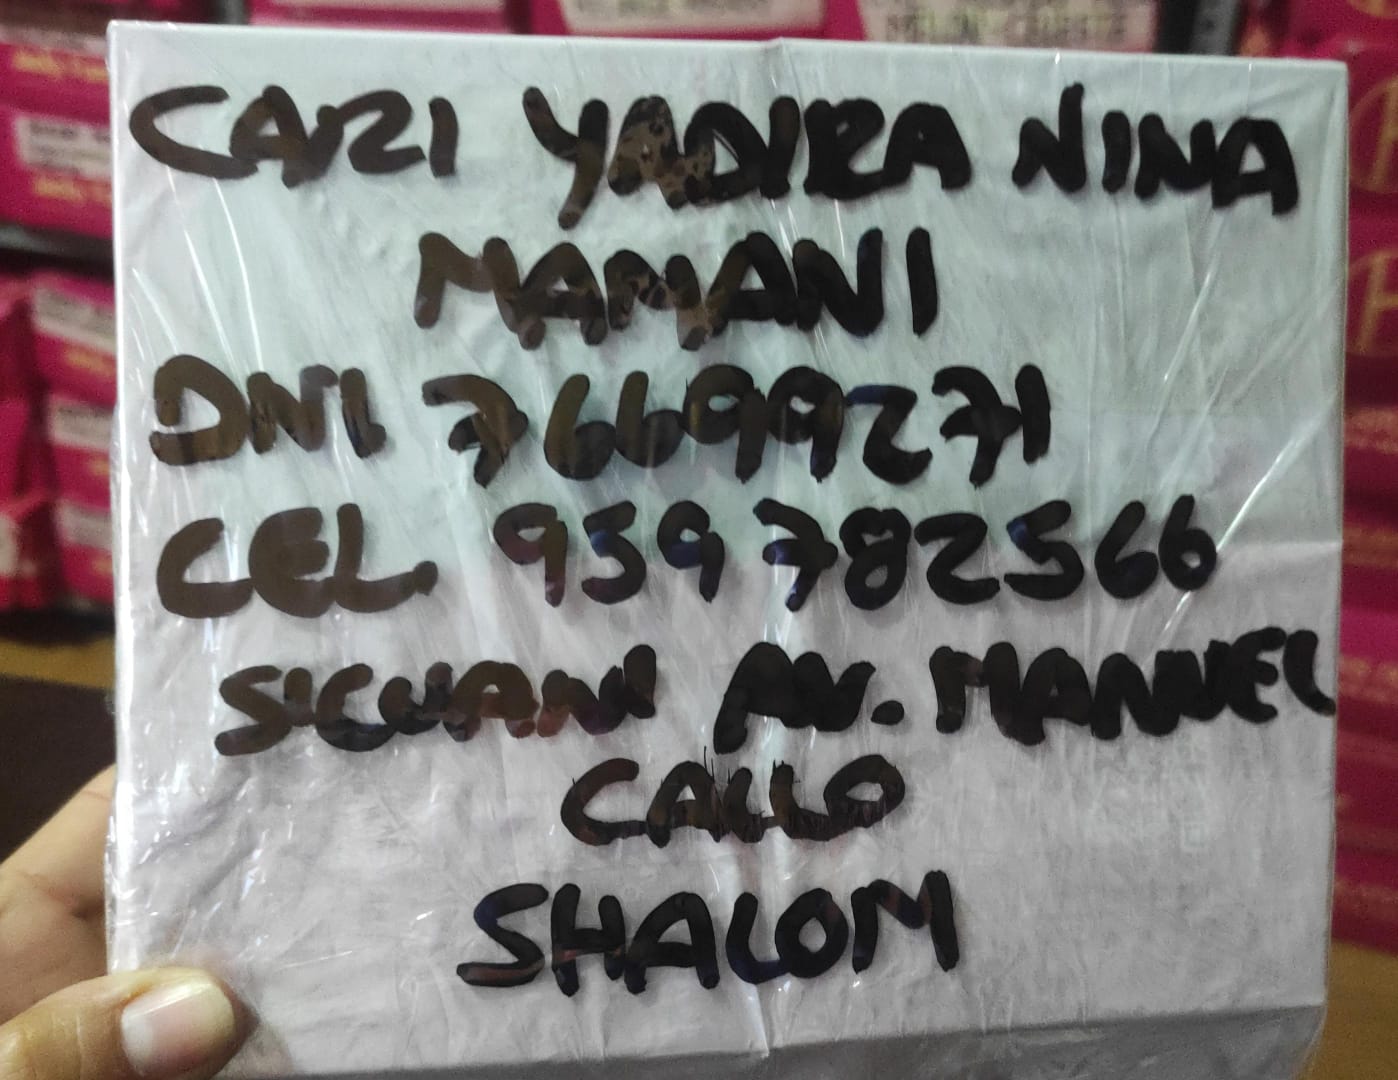 CARI YADIRA NINA
MAMANI
DNI 76699271
CEL. 959 782566
SICUANI AV. MANUEL
CALLO
SHALOM